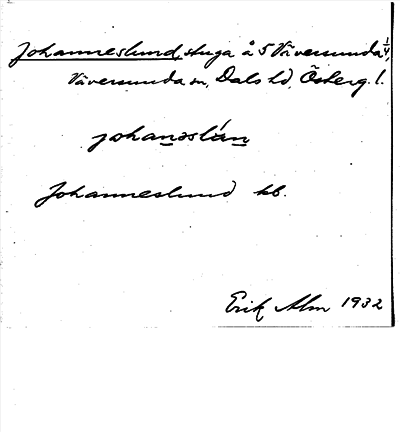 Johanneslund, stuga å 5 Väversunda 1/4,
Väversunda sn, Dals hd, Österg. l.
johanəslún
Johanneslund kb.
Erik Alm 1932